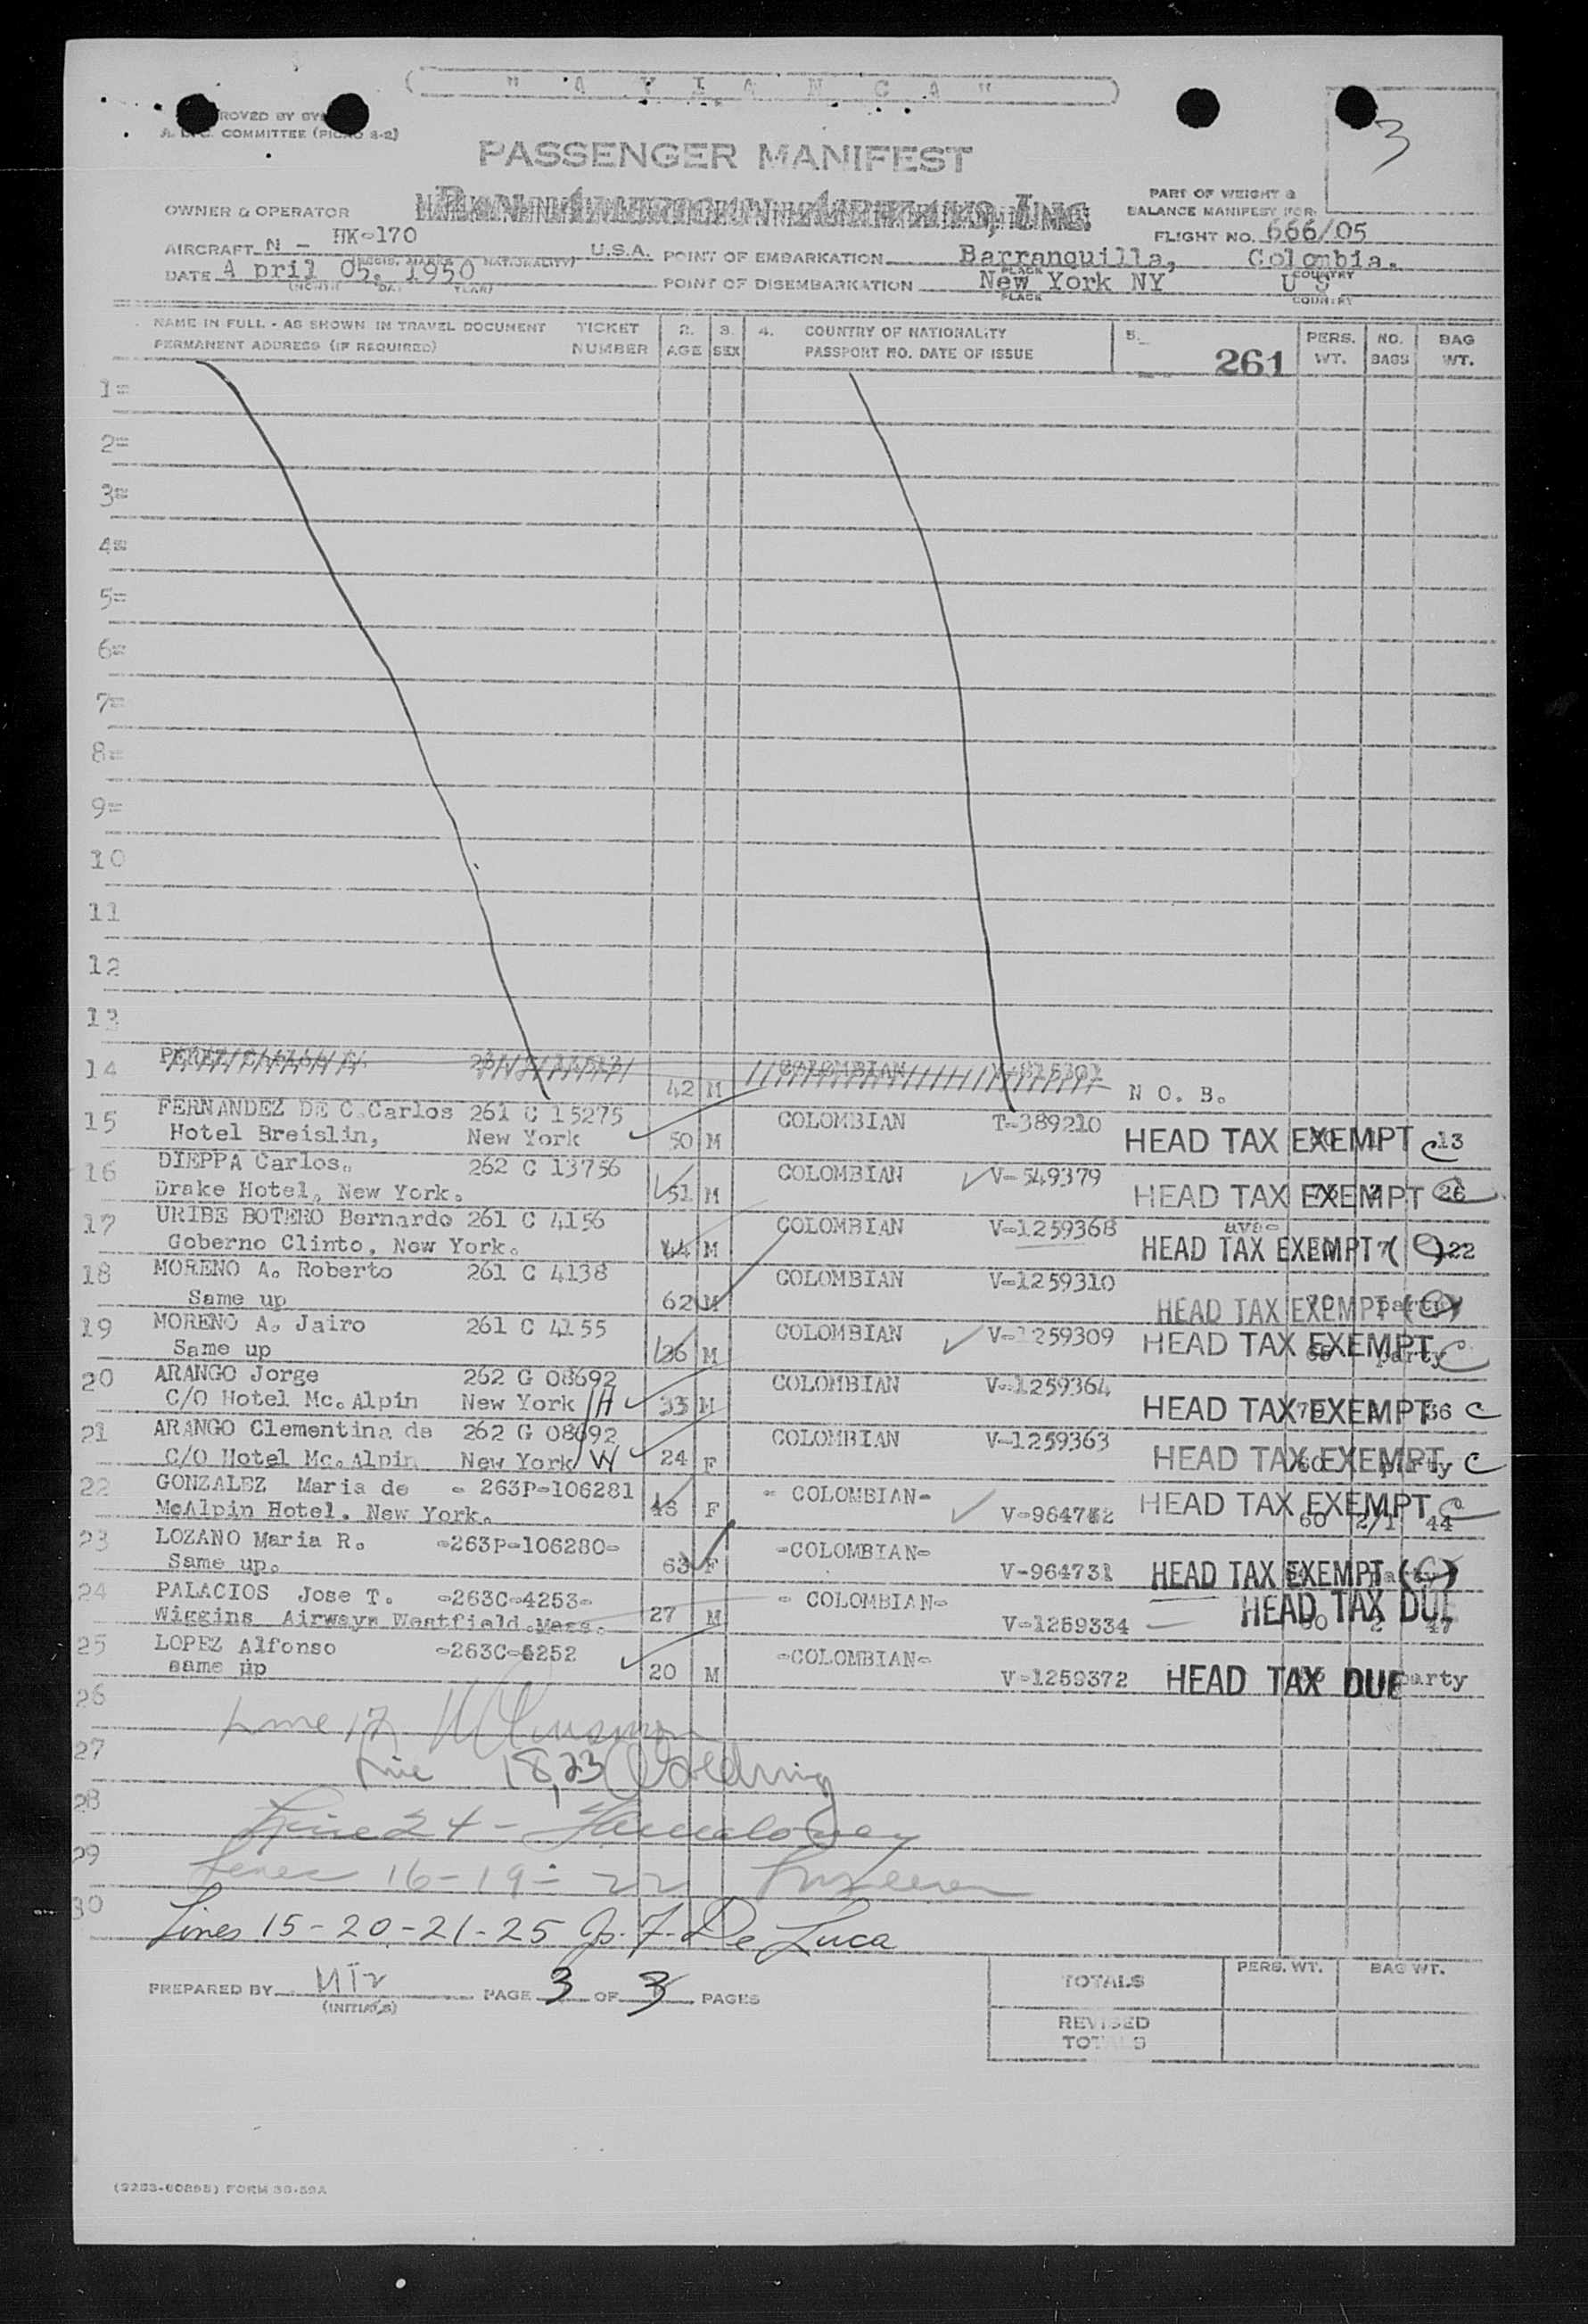 ( " A V I A N C A " )
3
COMMITTEE
PASSENGER MANIFEST
OWNER & OPERATOR
PART OF WEIGHT &
BALANCE MANIFEST FOR
FLIGHT NO. 666/05
AIRCRAFT N - HK-170 U.S.A. POINT OF EMBARKATION Barranquilla, Colombia.
DATE A pril 05, 1950 POINT OF DISEMBARKATION New York NY U S
NAME IN FULL - AS SHOWN IN TRAVEL DOCUMENT TICKET 2. 3. 4. COUNTRY OF NATIONALITY 5. PERS. NO. BAG
PERMANENT ADDRESS (IF REQUIRED) NUMBER AGE SEX PASSPORT NO. DATE OF ISSUE 261 WT. BAGS WT.
1=
2=
3=
4=
5=
6=
7=
8=
9=
10
11
12
13
14 COLOMBIAN
42 M N O. B.
15 FERNANDEZ DE C.Carlos 261 C 15275 COLOMBIAN T-389210
Hotel Breislin, New York 50 M HEAD TAX EXEMPT C 13
16 DIEPPA Carlos. 262 C 13756 COLOMBIAN V-549379
Drake Hotel, New York. 51 M HEAD TAX EXEMPT 26
17 URIBE BOTERO Bernardo 261 C 4156 COLOMBIAN V-1259368
Goberno Clinto, New York. 44 M HEAD TAX EXEMPT (C) 22
18 MORENO A. Roberto 261 C 4138 COLOMBIAN V-1259310
Same up 62 M HEAD TAX EXEMPT party (C)
19 MORENO A. Jairo 261 C 4155 COLOMBIAN V-1259309
Same up 36 M HEAD TAX EXEMPT party C
20 ARANGO Jorge 262 G 08692 COLOMBIAN V-1259364
C/O Hotel Mc.Alpin New York H 33 M HEAD TAX EXEMPT 36 C
21 ARANGO Clementina de 262 G 08692 COLOMBIAN V-1259363
C/O Hotel Mc.Alpin New York W 24 F HEAD TAX EXEMPT party C
22 GONZALEZ Maria de - 263P-106281 - COLOMBIAN-
McAlpin Hotel. New York. F V-964732 HEAD TAX EXEMPT C 60 2/1 44
23 LOZANO Maria R. -263P-106280- -COLOMBIAN-
Same up. 63 F V-964731 HEAD TAX EXEMPT (C)
24 PALACIOS Jose T. -263C-4253- - COLOMBIAN-
Wiggins Airways Westfield.Mass. 27 M V-1259334 HEAD TAX DUE 2 47
25 LOPEZ Alfonso -263C-4252 -COLOMBIAN-
same up 20 M V-1259372 HEAD TAX DUE party
26
Line 17
27
Line 18,23
28
Line 24 -
29
Lines 16-19-22
30
Lines 15-20-21-25 Jos. F. De Luca
PREPARED BY (INITIALS) PAGE 3 OF 3 PAGES
PERS. WT. BAG WT.
TOTALS
REVISED
TOTALS
FORM 38-59A